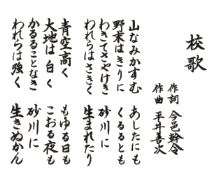 校歌
作詞 今邑鈴令
作曲 平井善次
山なみかすむ
野末はきりに
わきてさやけき
われらはさきく
あしたにも
くるるとも
砂川に
生まれたり
青空高く
大地は白く
かるることなき
われらは強く
もゆる日も
こおる夜も
砂川に
生きぬかん